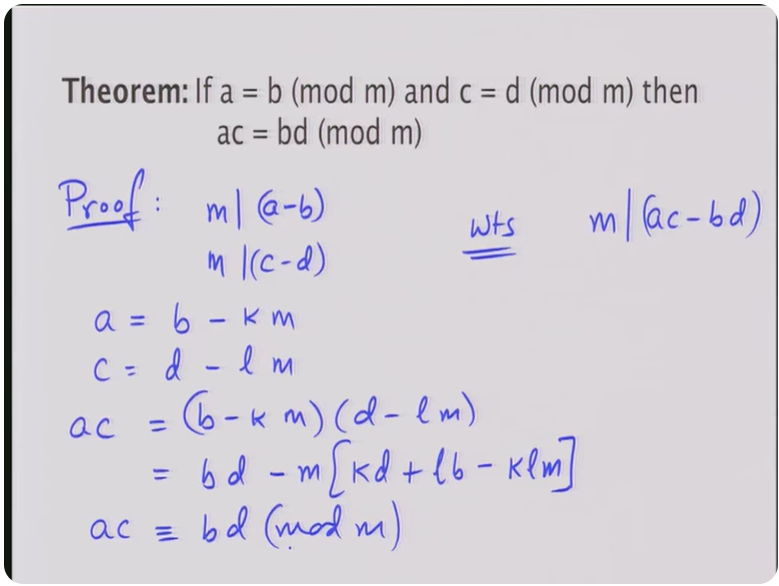 Theorem: If a = b (mod m) and c = d (mod m) then
ac = bd (mod m)
Proof : m | (a-b) wts m | (ac - bd)
m | (c-d)
a = b - k m
c = d - l m
ac = (b - k m) (d - l m)
= bd - m [kd + lb - klm]
ac ≡ bd (mod m)